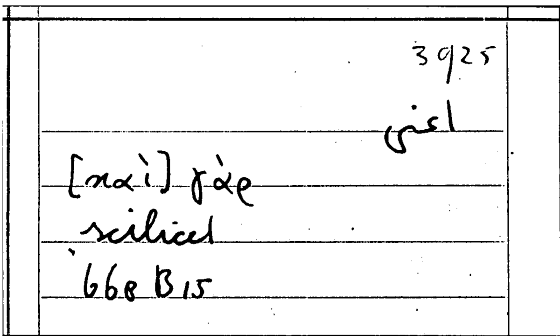 3925
اعني
[καὶ] γὰρ
scilicet
668 B 15